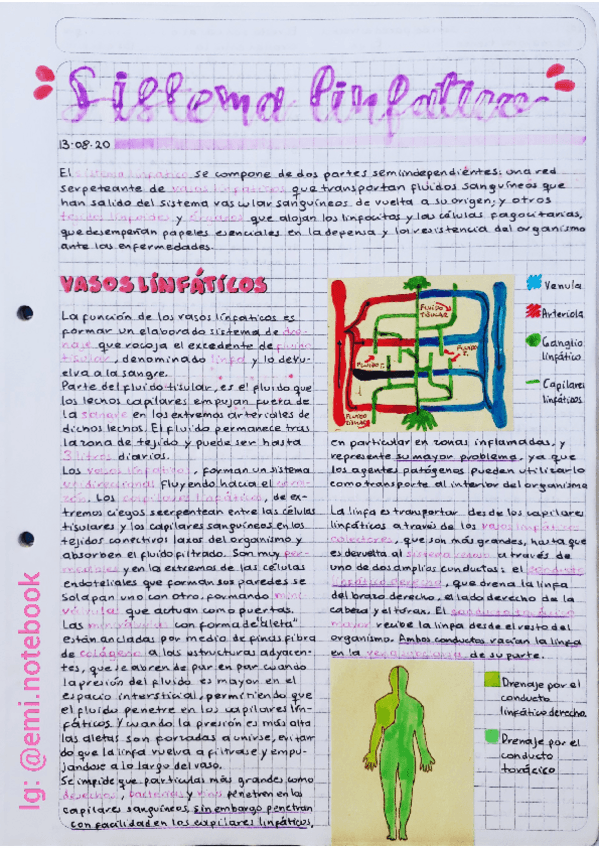 Sistema linfatico
13·08·20
El sistema linfático se compone de dos partes semiindependientes: una red
serpeteante de vasos linfáticos que transportan fluidos sanguíneos que
han salido del sistema vascular sanguíneos de vuelta a su origen; y otros
tejidos linfoides y órganos que alojan los linfocitos y las células fagocitarias,
que desempeñan papeles esenciales en la defensa y la resistencia del organismo
ante las enfermedades.
VASOS LINFÁTICOS
La función de los vasos linfaticos es
formar un elaborado sistema de dre-
naje que recoja el excedente de fluido
tisular, denominado linfa y lo devu-
elva a la sangre.
Parte del fluido tisular, es el fluido que
los lechos capilares empujan fuera de
la sangre en los extremos arteriales de
dichos lechos. El fluido permanece tras
la zona de tejido y puede ser hasta
3 litros diarios.
Los vasos linfáticos, forman un sistema
unidireccional fluyendo hacia el cora-
zón. Los capilares linfáticos, de ex-
tremos ciegos seerpentean entre las células
tisulares y los capilares sanguíneos en los
tejidos conectivos laxos del organismo y
absorben el fluido filtrado. Son muy per-
meables y en la extremos de las células
endoteliales que forman sus paredes se
solapan uno con otro, formando mini
válvulas que actuan como puertas.
Las minivalvulas con forma de "aleta"
están ancladas por medio de finas fibra
de colágeno a las estructuras adyacen-
tes, que se abren de par en par cuando
la presión del fluido es mayor en el
espacio intersticial, permitiendo que
el fluido penetre en los capilares lin-
fáticos. Y cuando la presión es más alta
las aletas son forzadas a unirse, evitan
do que la linfa vuelva a filtrase y empu-
jandose a lo largo del vaso.
Se impide que particulas más grandes como
desechos, bacterias y virus penetren en los
capilares sanguíneos, sin embargo penetran
con facilidad en los capilares linfáticos,
FLUIDO
TISULAR
FLUIDO
FLUIDO T.
FLUIDO
TISULAR
Venula
Arteriola
Ganglio
linfático
Capilares
linfáticos
en particular en zonas inflamadas, y
represente su mayor problema, ya que
los agentes patógenos pueden utilizarlo
como transporte al interior del organismo
La linfa es transportar desde los capilares
linfáticos a través de los vasos linfáticos
colectores, que son más grandes, hasta que
es devuelta al sistema venoso a través de
uno de dos amplios conductos: el conducto
linfático derecho, que drena la linfa
del brazo derecho, el lado derecho de la
cabeza y el tórax. El conducto torácico
mayor recibe la linfa desde el resto del
organismo. Ambos conductos vacían la linfa
en la vena subclavia de su parte.
Drenaje por el
conducto
linfático derecho.
Drenaje por el
conducto
toracico
Ig: @emi.notebook